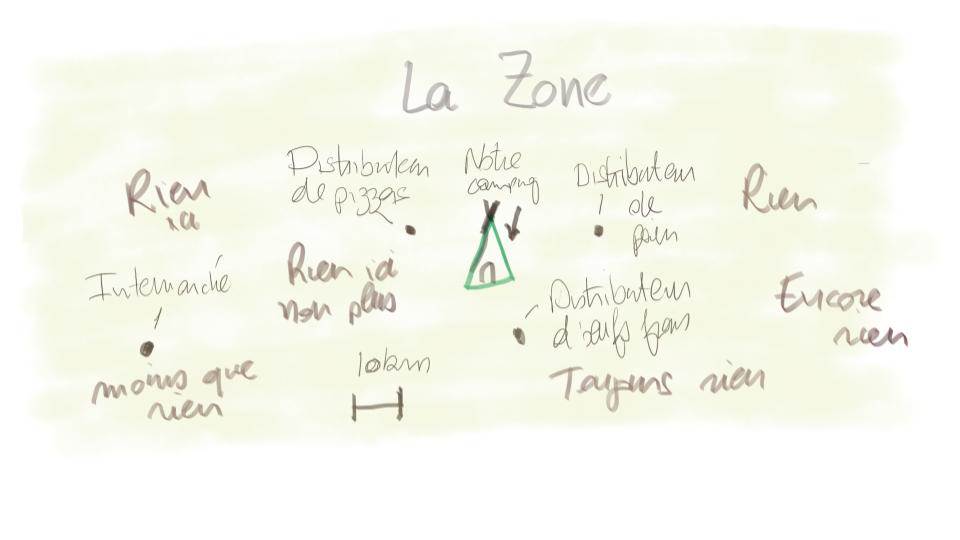 La Zone
Rien
ici
Distributeur
de pizzas
Notre
camping
Distributeur
de
pain
Rien
Intermarché
Rien ici
non plus
Distributeur
d'œufs frais
Encore
rien
moins que
rien
10km
Toujours rien